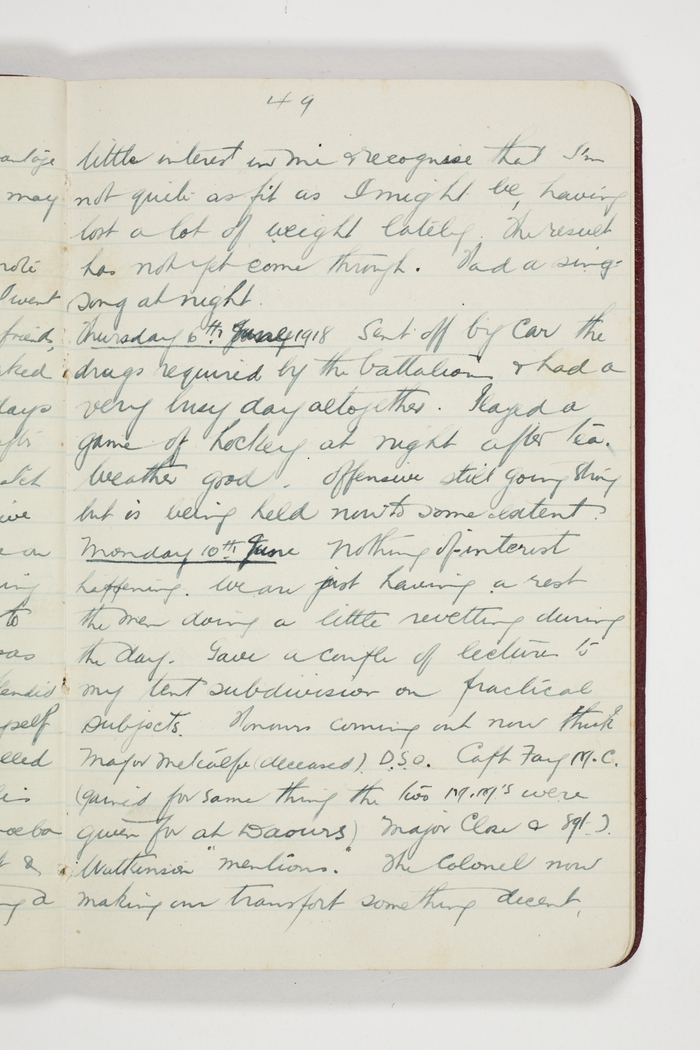 49
little interest in me & recognise that I'm
not quite as fit as I might be, having
lost a lot of weight lately. The result
has not yet come through. Had a sing-
song at night.
Thursday 6th June 1918 Sent off by Car the
drugs required by the battalion & had a
very busy day altogether. Played a
game of hockey at night after tea.
Weather good. Offensive still going strong
but is being held now to some extent.
Monday 10th June Nothing of interest
happening. We are just having a rest
the men doing a little revetting during
the day. Gave a couple of lectures to
my tent subdivision on practical
subjects. Honours coming out now thick
Major Metcalfe (deceased) D.S.O. Capt Fay M.C.
(gained for same thing the two M.M's were
given for at Daours) Major Clow & Sgt. J.
Watkinson "mentions." The Colonel now
making our transport something decent,
antage
may
wrote
I went
friend,
ked
days
after
ive
on
ing
to
was
lendid
yself
elled
his
&
ng a